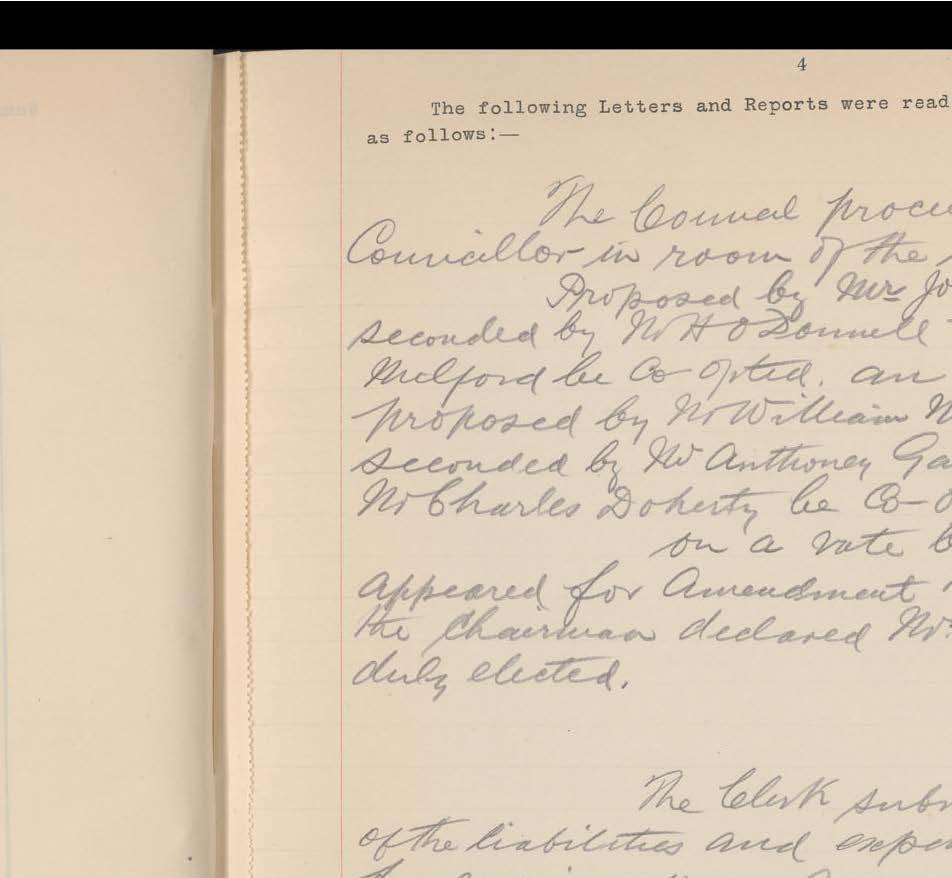 4
The following Letters and Reports were read
as follows:—
The Council proce
Councillor in room of the
Proposed by Mr Jo
seconded by Mr H O Donnell
Milford be Co-opted. an
proposed by Mr William M
seconded by Mr Anthoney Ga
Mr Charles Doherty be Co-o
on a vote b
appeared for Amendment
the Chairman declared Mr
duly elected.
The Clerk subm
of the liabilities and expen